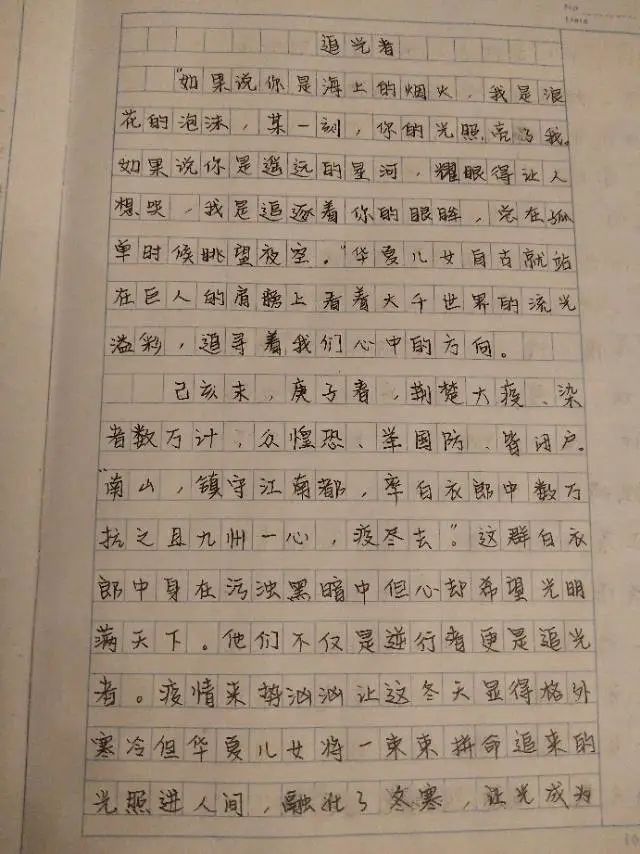 追光者
"如果说你是海上的烟火，我是浪
花的泡沫，某一刻，你的光照亮了我。
如果说你是遥远的星河，耀眼得让人
想哭，我是追逐着你的眼眸，总在孤
单时候眺望夜空。"华夏儿女自古就站
在巨人的肩膀上看着大千世界的流光
溢彩，追寻着我们心中的方向。
己亥末，庚子春，荆楚大疫、染
者数万计，众惶恐、举国防、皆闭户。
"南山，镇守江南都，率白衣郎中数万
抗之且九州一心，疫尽去"。这群白衣
郎中身在污浊黑暗中但心却希望光明
满天下。他们不仅是逆行者更是追光
者。疫情来势汹汹让这冬天显得格外
寒冷但华夏儿女将一束束拼命追来的
光照进人间，融化了冬寒，让光成为